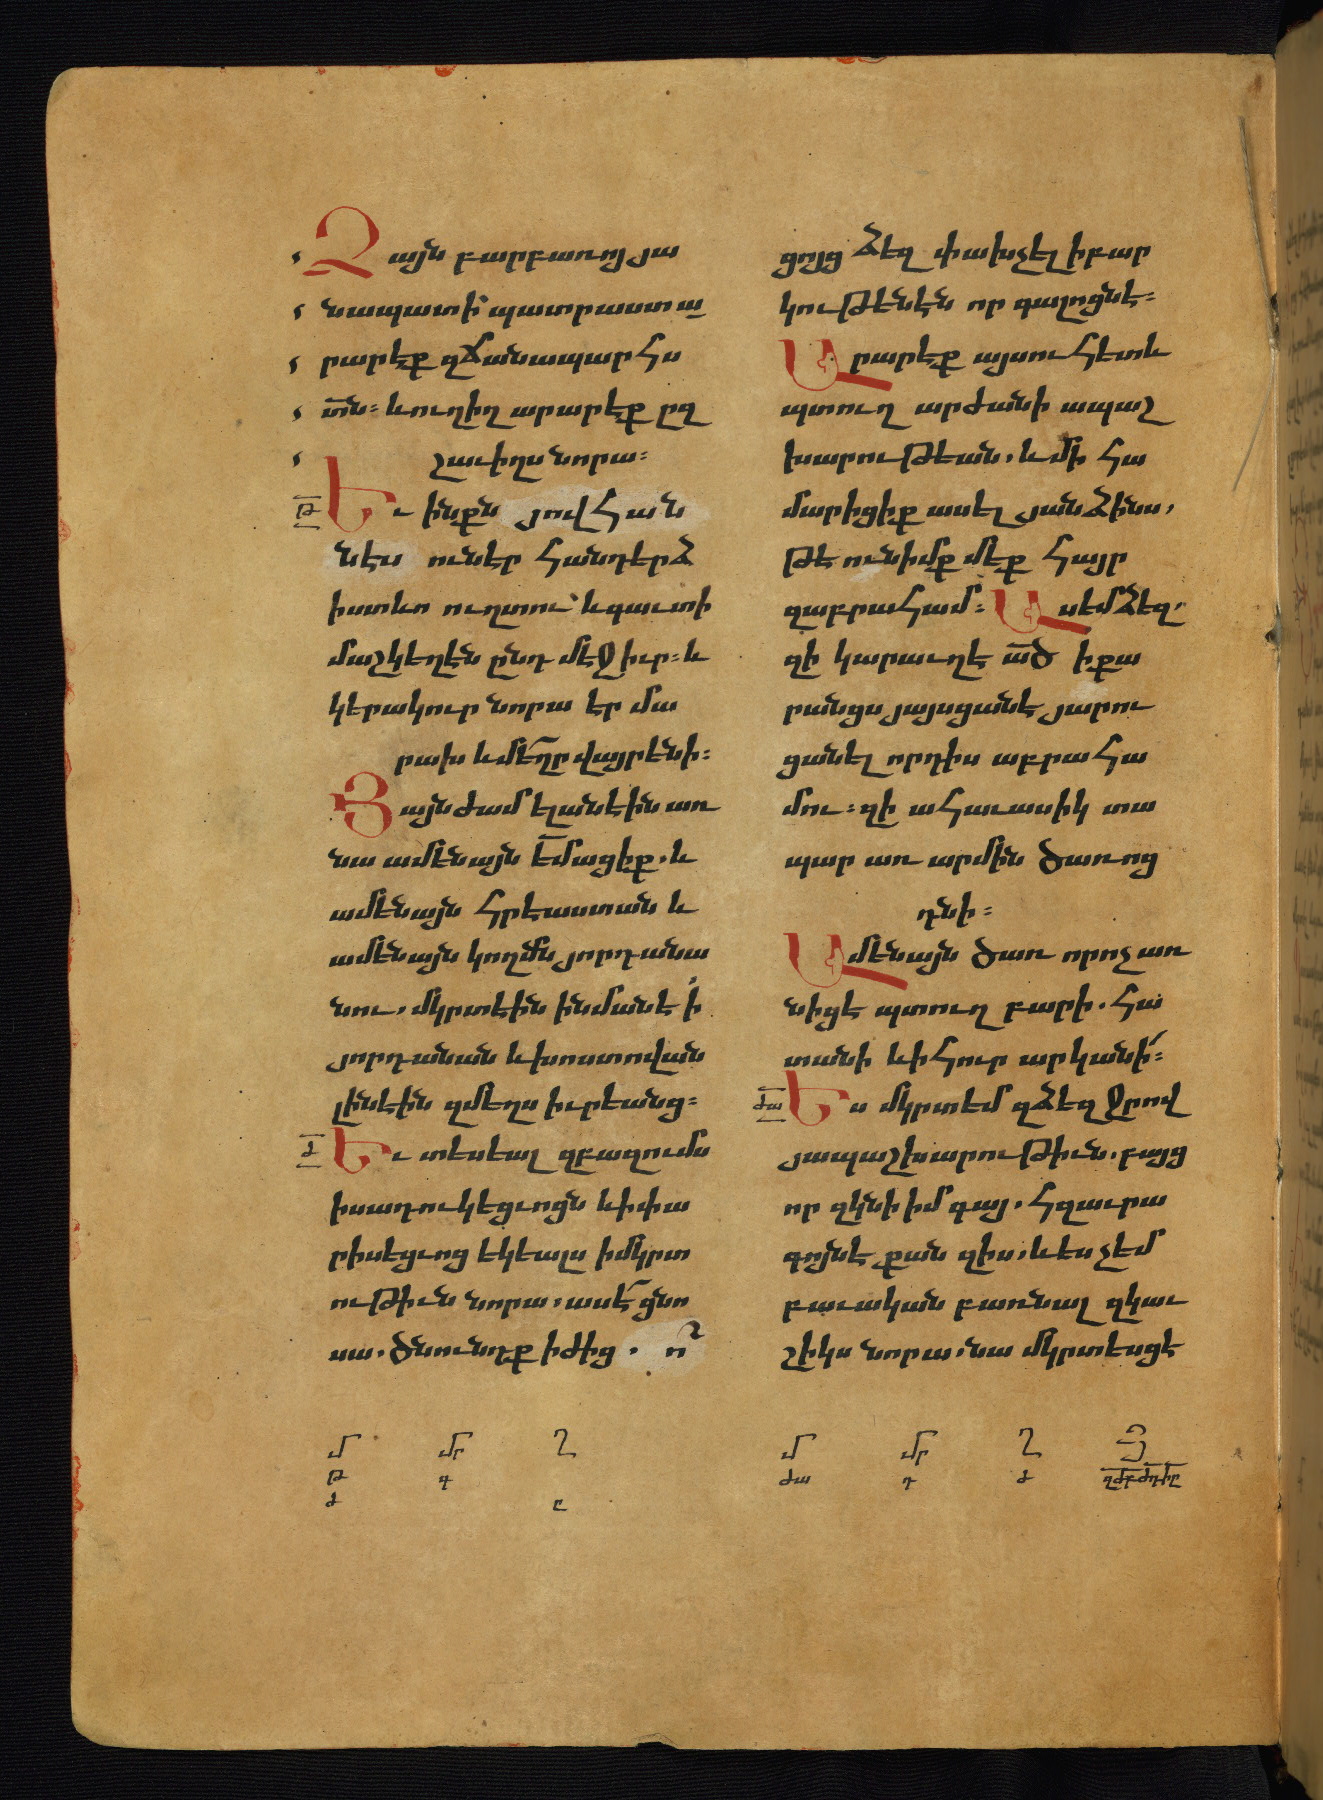 Ձայն բարբառոյ յա
նապատի՝ պատրաստ ա
րարէք զճանապարհս
տն։ և ուղիղ արարէք ըզ
շաւիղս նորա։
Թ Եւ ինքն յովհան
նէս ունէր հանդերձ
ի ստևո ուղտու՝ և գաւտի
մաշկեղէն ընդ մէջ իւր։ և
կերակուր նորա էր մա
րախ և մեղր վայրենի։
Յայնժամ ելանէին առ
նա ամենայն եմացիք. և
ամենայն հրէաստան և
ամենայն կողմն յորդանա
նու. մկրտէին ի նմանէ ի՛
յորդանան և խոստովան
լինէին զմեղս իւրեանց։
Ժ Եւ տեսեալ զբազումս
ի սադուկեցւոցն և ի փա
րիսեցւոց եկեալս ի մկրտ
ութիւն նորա. ասէ ցնո
սա. ծնունդք իժից. ո՞
ցոյց ձեզ փախչել ի բար
կութենէն որ գալոցն է։
Արարէք այսուհետև
պտուղ արժանի ապաշ
խարութեան. և մի հա
մարիցիք ասել յանձինս,
թէ ունիմք մեք հայր
զաբրահամ։ Ասեմ ձեզ.
զի կարաւղ է ած ի քա
րանցս յայսցանէ յարու
ցանել որդիս աբրահա
մու։ զի ահաւասիկ տա
պար առ արմին ծառոց
դնի։
Ամենայն ծառ որ ոչ առ
նիցէ պտուղ բարի. հա
տանի և ի հուր արկանի՛։
ԺԱ Ես մկրտեմ զձեզ ջրով
յապաշխարութիւն. բայց
որ զկնի իմ գայ. հզաւրա
գոյն է քան զիս. և ես չեմ
բաւական բառնալ զկաւ
շիկս նորա. նա մկրտեսցէ
մ մր ղ
թ գ
ժ ը
մ մր ղ
ժա դ ժ